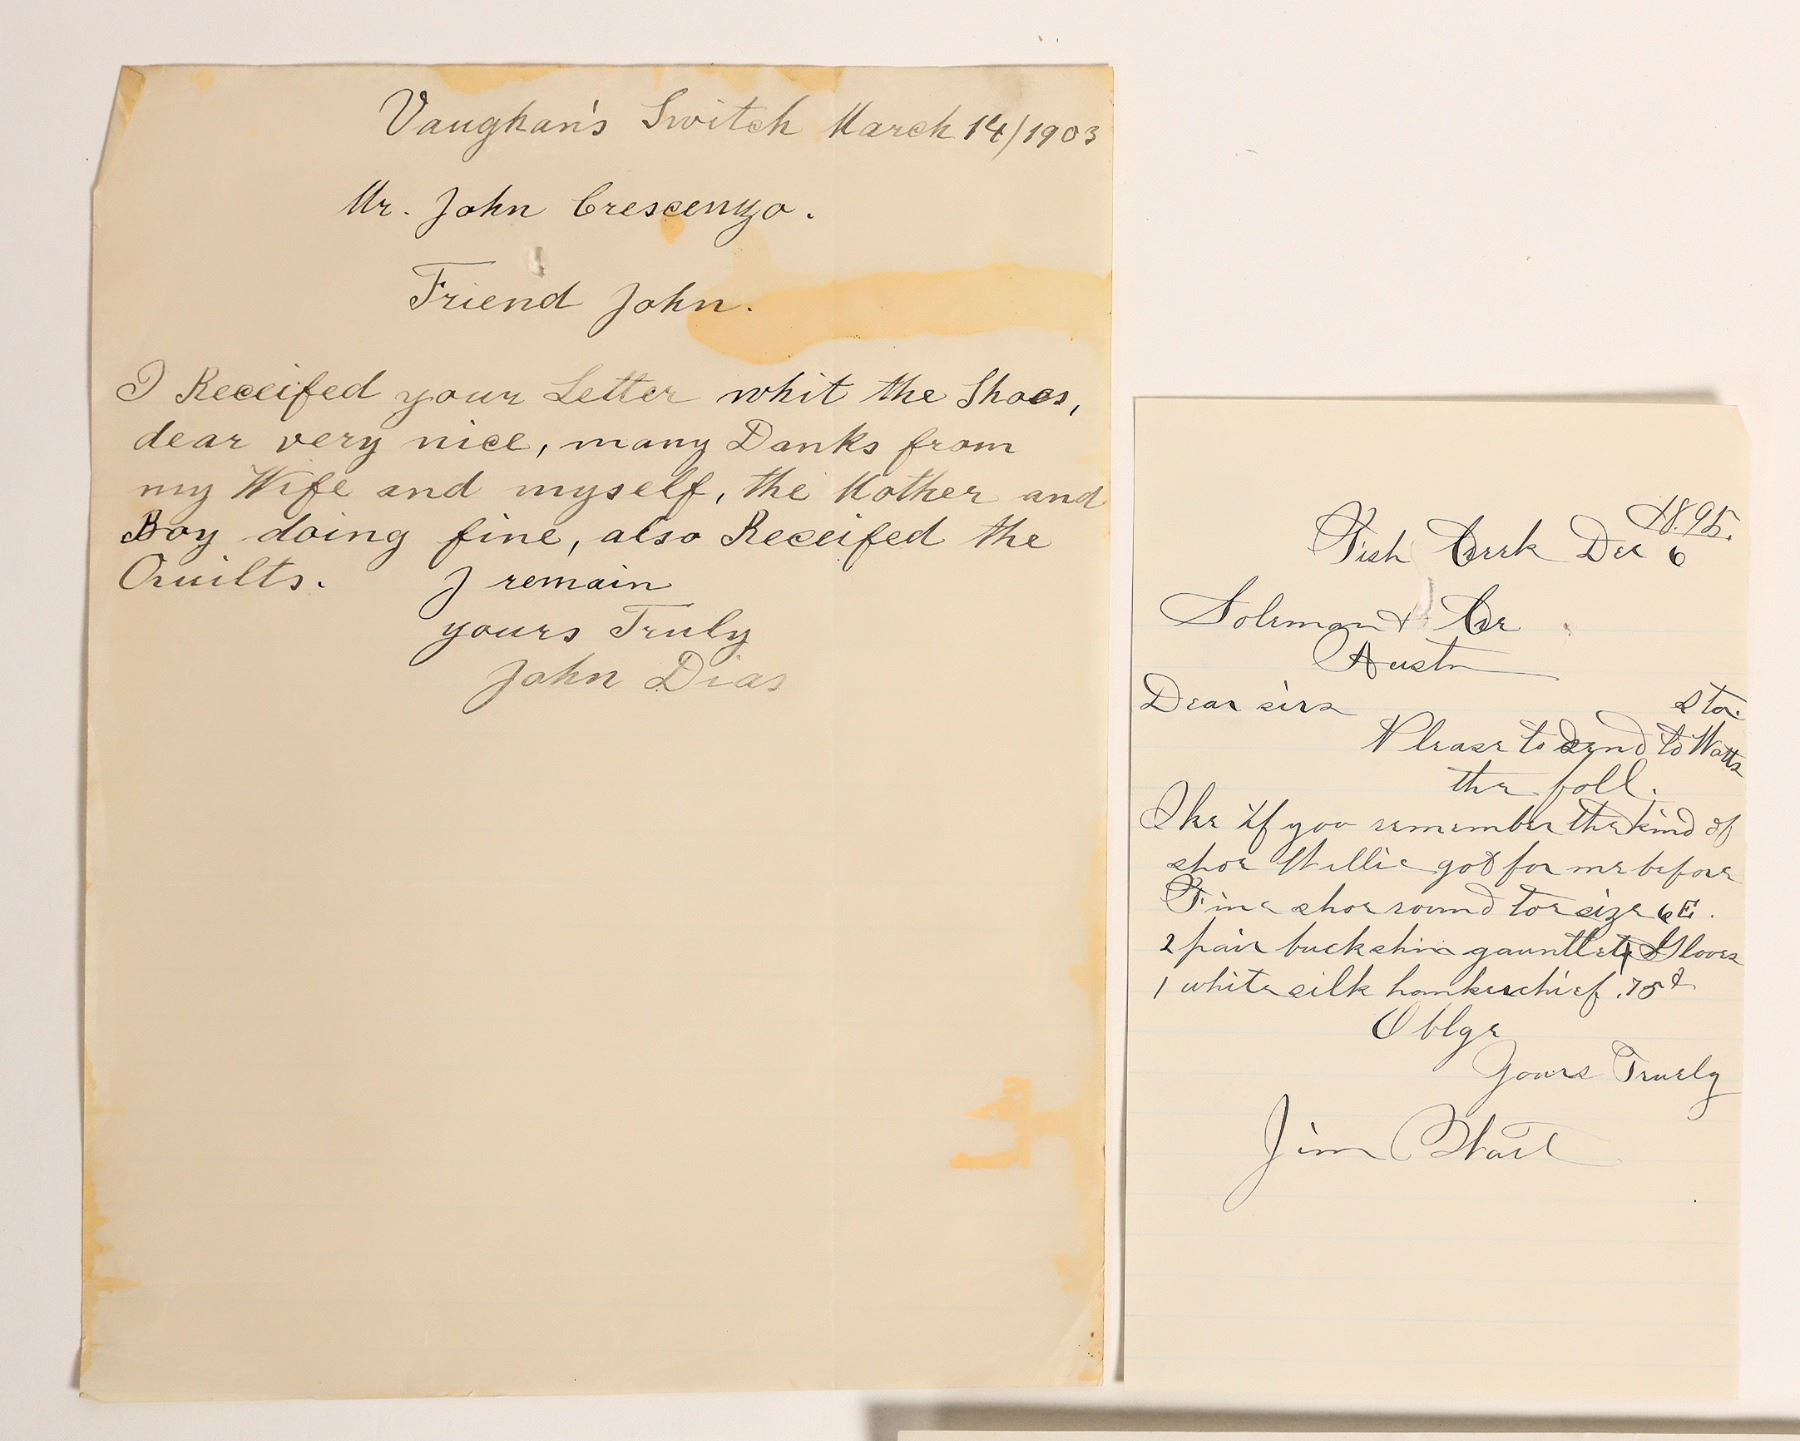 Vaughan's Switch March 14/1903
Mr. John Crescenzo.
Friend John.
I Receifed your Letter whit the Shoes,
dear very nice, many Danks from
my Wife and myself, the Mother and
Boy doing fine, also Receifed the
Quilts. I remain
yours Truly
John Dias
1895.
Fish Creek Dec 6
Soleman & Co
Austin
Dear sirs
Please to send to Watts
sto.
the foll.
Ike if you remember the kind of
shoe Willie got for me before
Fine shoe round toe size 6 E.
2 pair buckskin gauntlet Gloves
1 white silk hankerchief .75
Oblge
Yours Truely
Jim